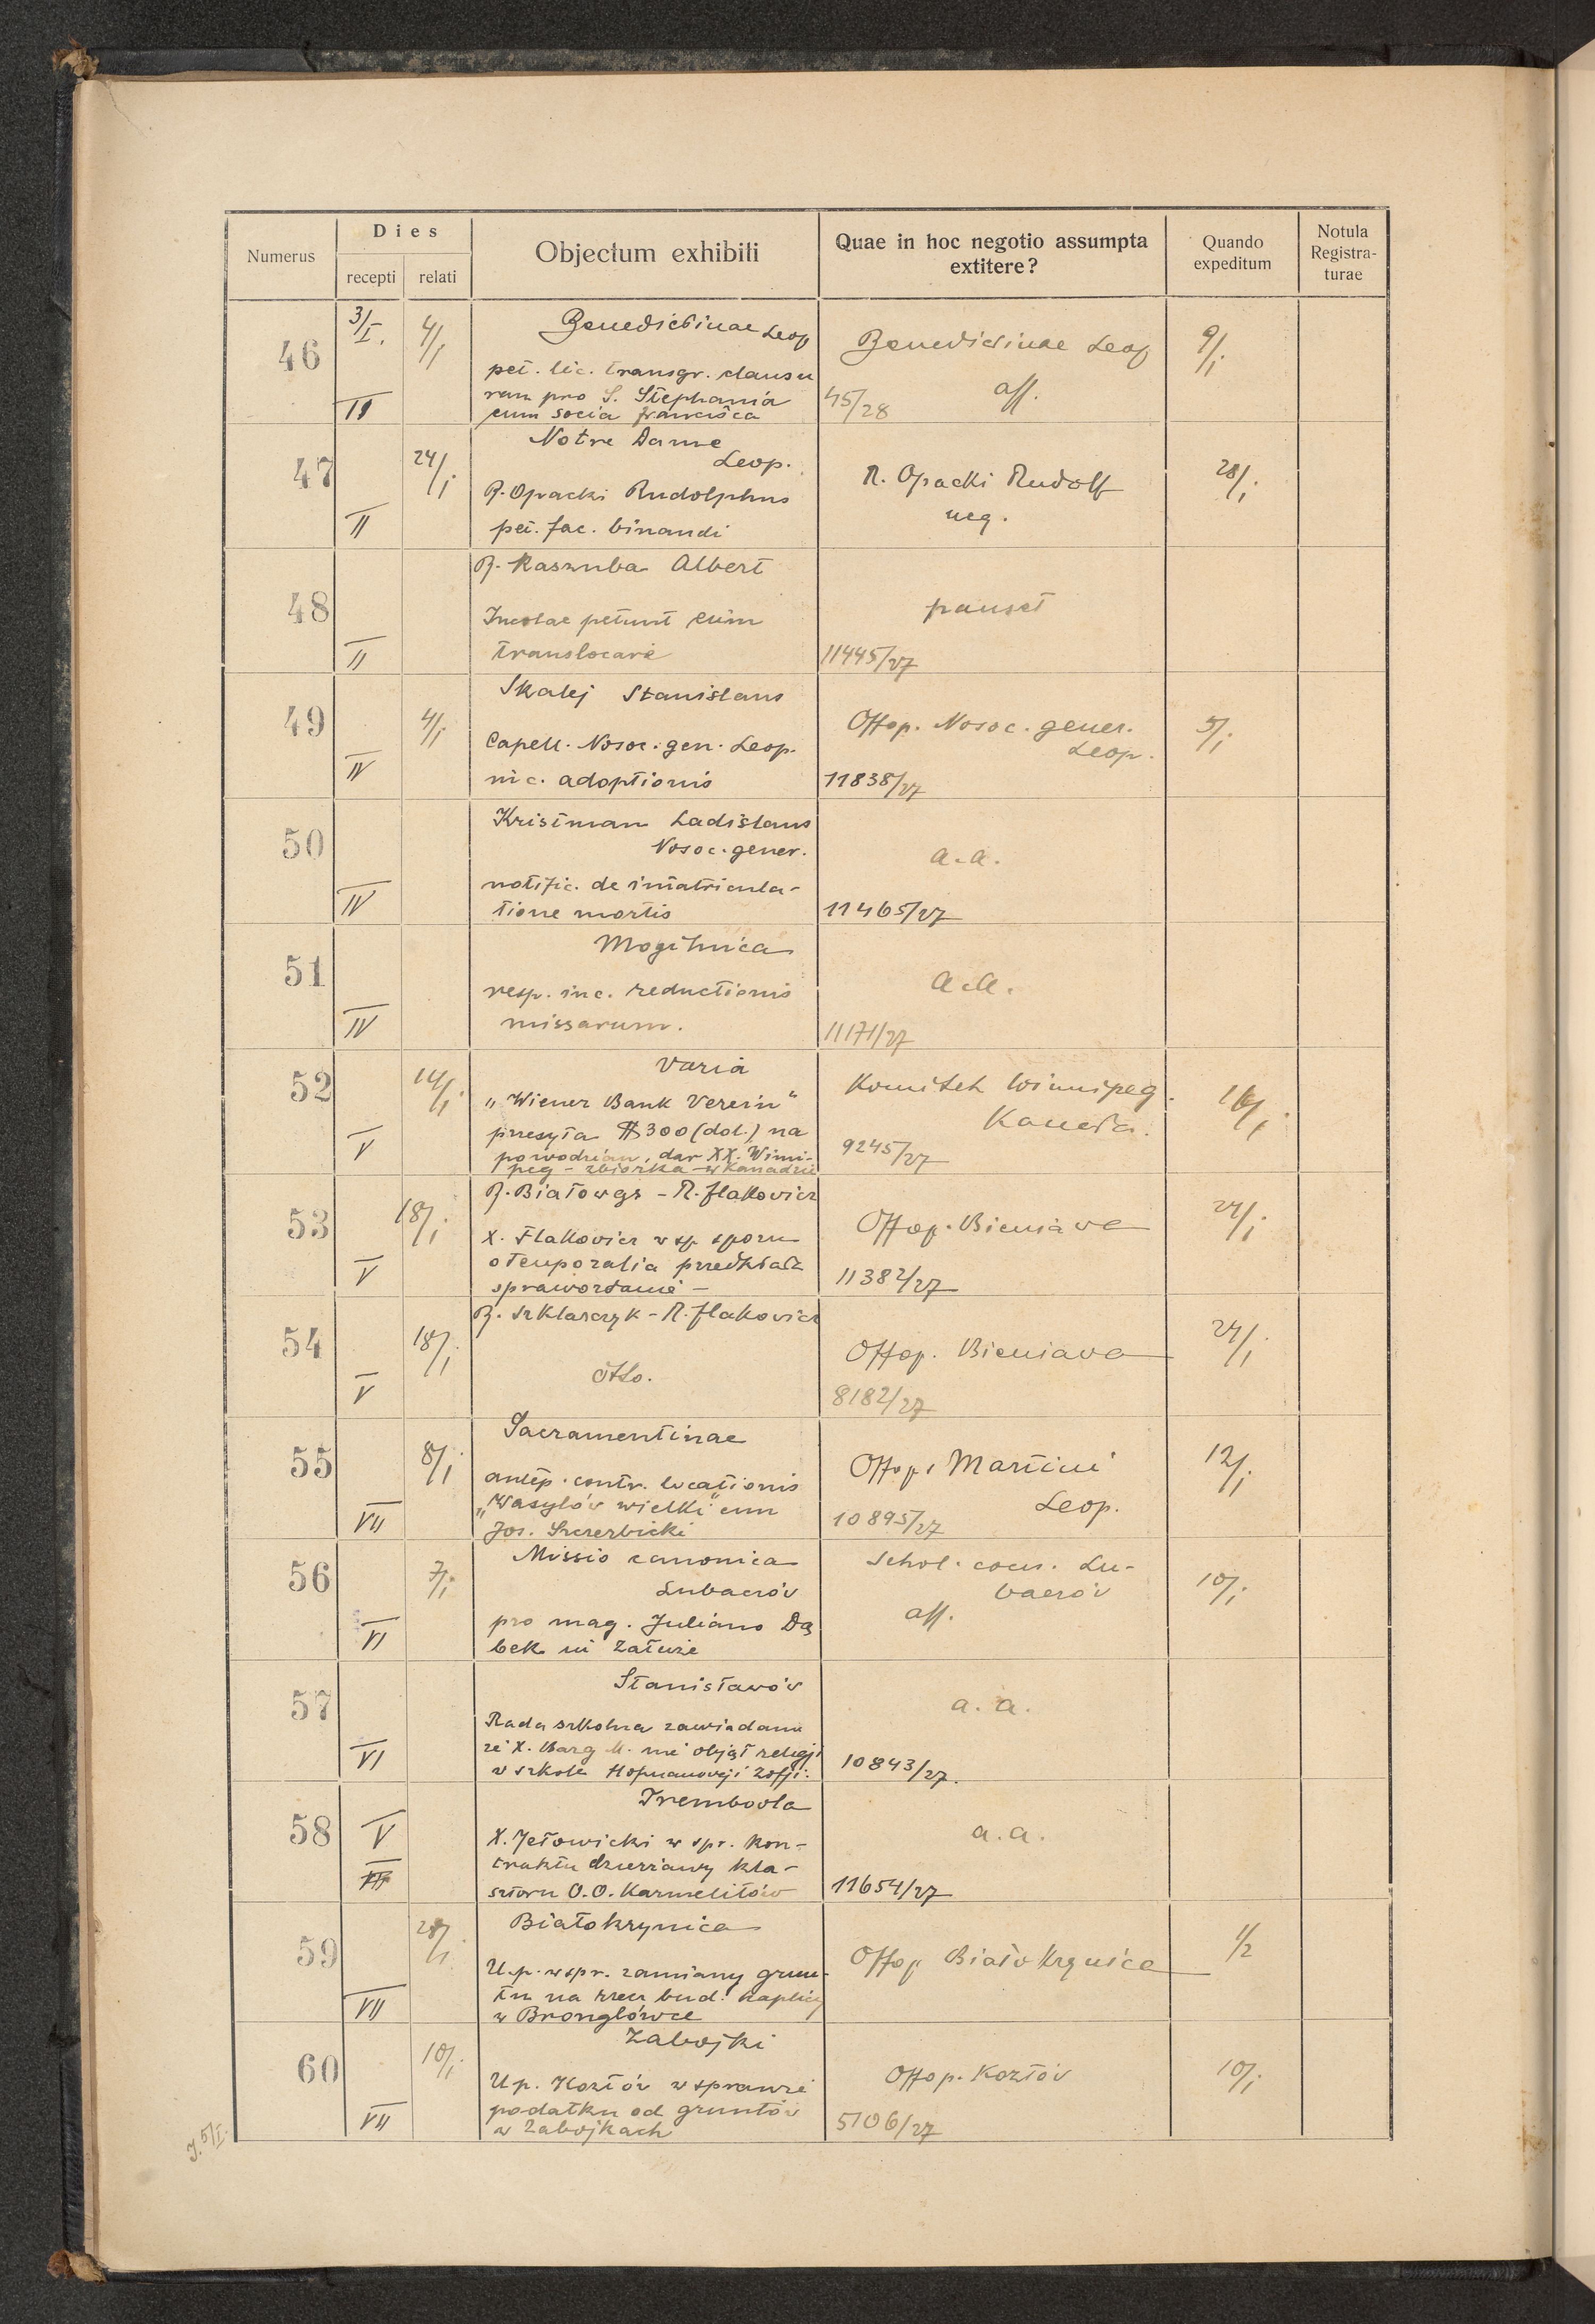 Numerus
Dies
recepti relati
Objectum exhibiti
Quae in hoc negotio assumpta
extitere?
Quando
expeditum
Notula
Registra-
turae
46
3/I. 4/1
II
Benedictinae Leop
pet. lic. transgr. clausu
ram pro S. Stephania
cum socia Francisca
Benedictinae Leop
aff.
45/28
9/1
47
24/1
II
Notre Dame
Leop.
R. Opacki Rudolphus
pet. fac. binandi
R. Opacki Rudolf
neg.
28/1
48
II
R. Kaszuba Albert
Incolae petunt eum
translocari
pauset
11445/27
49
4/1
IV
Skalij Stanislaus
Capell. Nosoc. gen. Leop.
nic. adoptionis
Offop. Nosoc. gener.
Leop.
11838/27
5/1
50
IV
Kristman Ladislaus
Nosoc. gener.
notific. de imatricula-
tione mortis
a.a.
11465/27
51
IV
Mogilnica
resp. inc. reductionis
missarum.
a.a.
11171/27
52
14/1
V
Varia
„Wiener Bank Verein“
przesyła $300 (dol.) na
powodzian, dar XX. Winni-
peg - zbiorka w Kanadzie
Komitet Winnipeg.
Kanada.
9245/27
16/1
53
18/1
V
R. Białowąs - R. Flakovicz
X. Flakovicz w sp. sporu
o temporalia przedkłada
sprawozdanie -
Offop. Bieniawa
11382/27
24/1
54
18/1
V
R. Szklarczyk - R. Flakovicz
dtto.
Offop. Bieniava
8182/27
24/1
55
8/1
VII
Sacramentinae
antep. contr. locationis
„Wasylów wielki“ cum
Jos. Szczerbicki
Offop. Martini
Leop.
10895/27
12/1
56
7/1
VI
Missio canonica
Lubaczów
pro mag. Juliano Dą
bek in Załuże
Schol. cons. Lu-
baczów
aff.
10/1
57
VI
Stanisławów
Rada szkolna zawiadam
że X. Barg M. nie objął religji
w szkole Hofmanowej i Zofji.
a.a.
10843/27.
58
V
VII
Trembovla
X. Jełowicki w spr. kon-
traktu dzierżawy kla-
sztoru O.O. Karmelitów
a.a.
11654/27
59
28/1
VII
Białokrynica
U.p. w spr. zamiany grun-
tu na rzecz bud. kaplicy
w Bronglówce
Offop Białokrynica
1/2
60
10/1
VII
Zabojki
U.p. Kozłów w sprawie
podatku od gruntów
w Zabojkach
Offop. Kozłów
5106/27
10/1
J. 5/I.